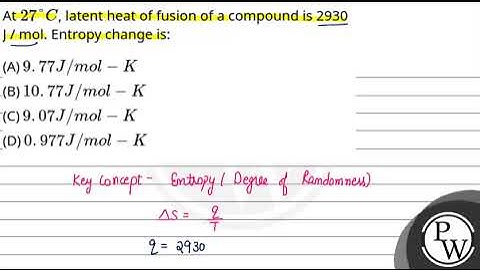 At 27°C, latent heat of fusion of a compound is 2930
J / mol. Entropy change is:
(A) 9.77J/mol − K
(B) 10.77J/mol − K
(C) 9.07J/mol − K
(D) 0.977J/mol − K
Key Concept - Entropy ( Degree of Randomness)
ΔS = q/T
q = 2930
PW